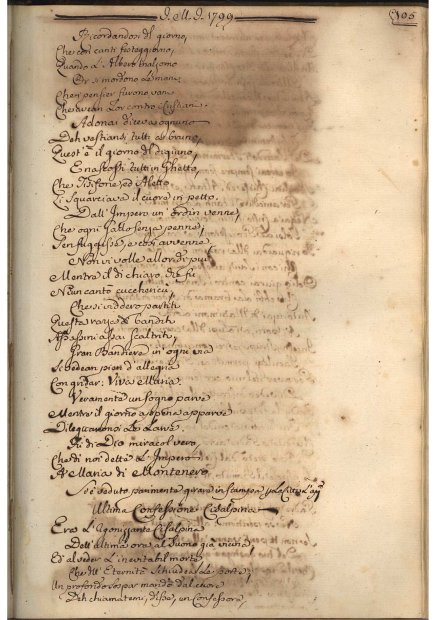 J. M. J. 1799
105
Ricordandosi del giorno,
Che con canti festeggiorno,
Quando l' Albero Inalzorno
Or si mordono le mani,
Che i pensier furono vani
Che avean lor contro i Cristiani.
Adonai dicea ognuno
Deh vestiansi tutti a bruno,
Quest' è il giorno del digiuno,
E nascosti tutti in Ghetto,
Che Tisifone, ed Aletto
Li squarciava il cuore in petto.
Dall' Impero un ordin venne,
Che ogni Gallo senza penne,
Sen fuggisse, e così avvenne,
Non vi volle allor di più
Mentre il dì chiaro
Niun cantò cucchericù,
Che si viddero partiti
Questa razza di banditi
Assassini assai scaltriti,
Gran Bandiere in ogni via
Si vedean pien d' allegria
Con gridar: Viva Maria.
Veramente un sogno parve
Mentre il giorno appena apparve
Dileguaronsi le Larve.
Fù di Dio miracol vero,
Che di noi dette l' Impero
A Maria di Montenero
Si è veduto parimente girare in stampa
Ultima Confessione Cisalpina
Era l' Agonizante Cisalpina
Dell' ultima ora al suono già vicina
Ed al veder l' inevitabil morte
Che dell' Eternità schiudea le porte;
Un profondo sospir mandò dal cuore
Deh chiamatemi, disse, un Confessore,